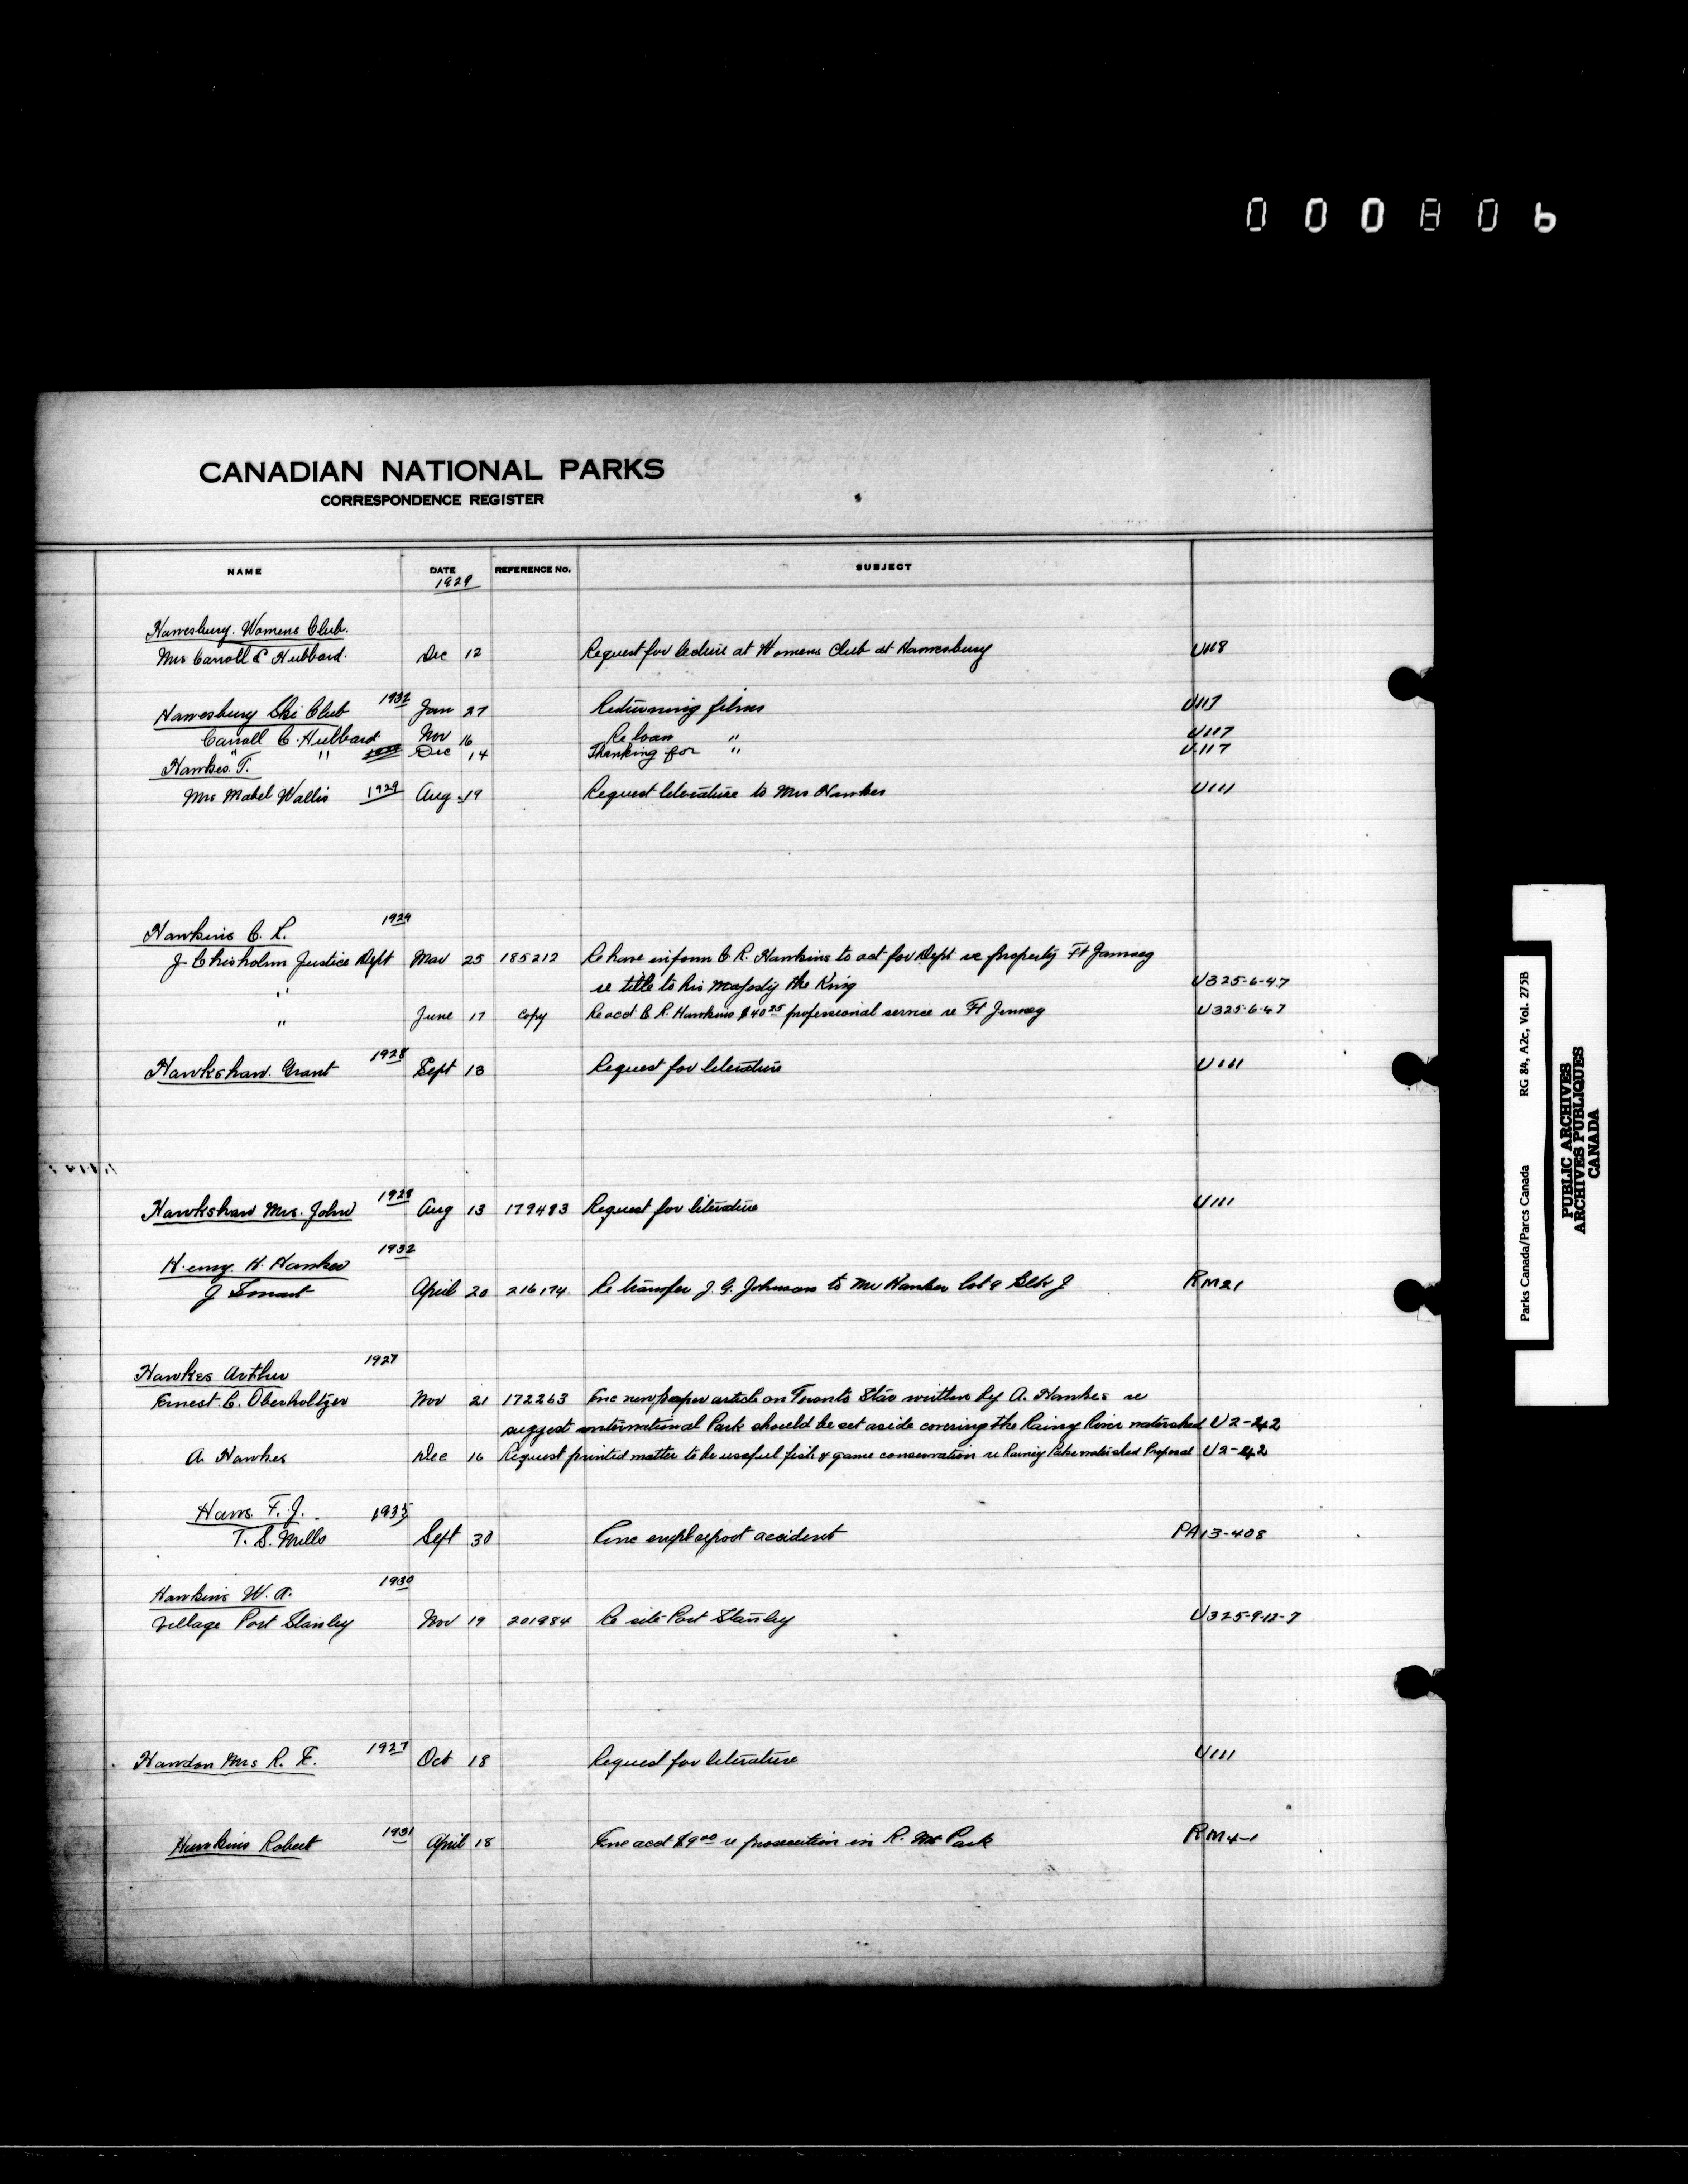 000806
CANADIAN NATIONAL PARKS
CORRESPONDENCE REGISTER
NAME DATE REFERENCE No. SUBJECT
1929
Hawesbury Womens Club.
Mrs Carroll C Hubbard. Dec 12 Request for lecture at Womens Club at Hawesbury U118
Hawesbury Ski Club 1932 Jan 27 Returning films U117
Carroll C. Hubbard Nov 16 Re loan " U117
" " Dec 14 Thanking for " U117
Hawkes T.
Mrs Mabel Wallis 1929 Aug 19 Request literature to Mrs Hawkes U111
Hawkins C. R. 1929
J Chisholm Justice Dept Mar 25 185212 Re have inform C R. Hawkins to act for Dept re property Ft Jemseg
" re title to his Majesty the King U325-6-47
" June 17 copy Re acct C R. Hawkins $40 25 professional service re Ft Jemseg U325-6-47
Hawkshaw Grant 1928 Sept 13 Request for literature U111
Hawkshaw Mrs. John 1928 Aug 13 179483 Request for literature U111
Henry H. Hawkes 1932
J Smart April 20 216174 Re transfer J. G. Johnson to Mr Hawkes lot 9 Blk J RM21
Hawkes Arthur 1927
Ernest C. Oberholtzer Nov 21 172263 Enc newspaper article on Toronto Star written by A. Hawkes re
suggest international Park should be set aside covering the Rainy River watershed U2-242
A. Hawkes Dec 16 Request printed matter to be useful fish & game conservation re Rainy watershed Proposal U2-242
Haws F. J. 1935
T. S. Mills Sept 30 Enc report accident PA13-408
Hawkins W. A. 1930
Village Port Stanley Nov 19 201984 Re site Port Stanley U325-9-12-7
Hawdon Mrs R. E. 1927 Oct 18 Request for literature U111
Hawkins Robert 1931 April 18 Enc acct $9 00 re prosecution in R. Mt Park RM4-1
Parks Canada/Parcs Canada RG 84, A2c, Vol. 275B
PUBLIC ARCHIVES
ARCHIVES PUBLIQUES
CANADA